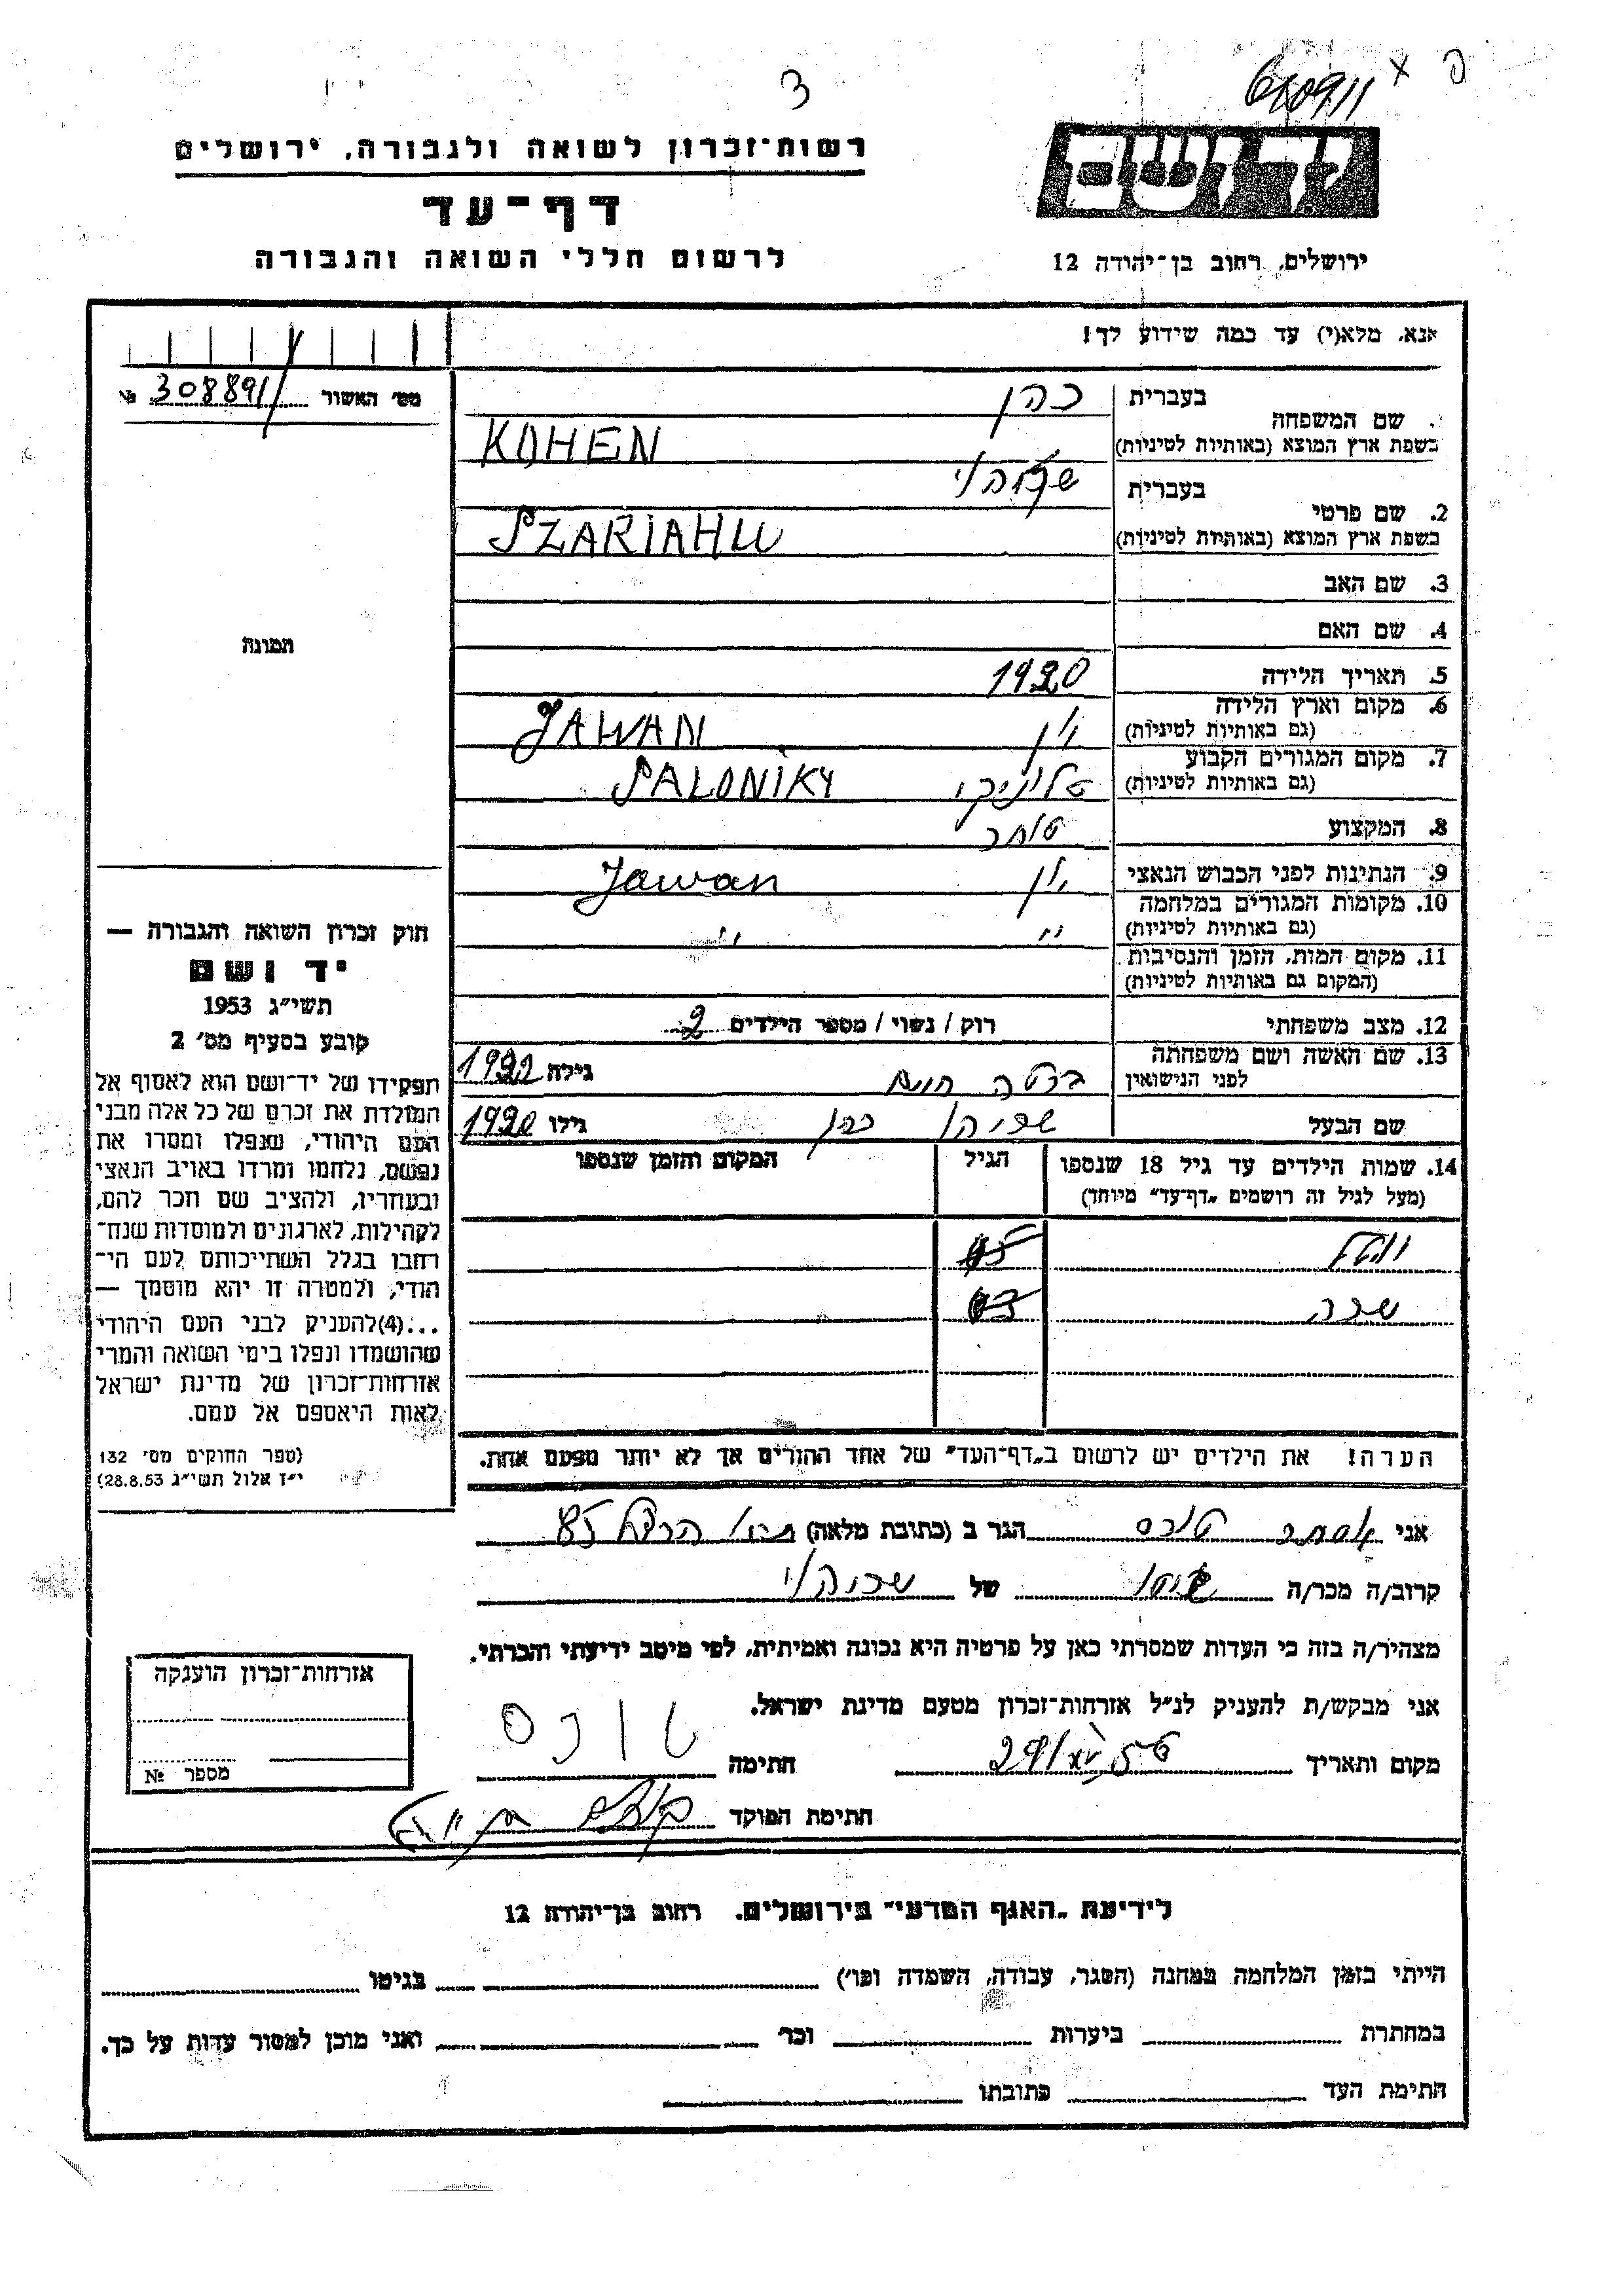 פ x
640911
3
רשות־זכרון לשואה ולגבורה, ירושלים
דף־עד
לרשום חללי השואה והגבורה
יד ושם
ירושלים, רחוב בן־יהודה 12
אנא, מלא(י) עד כמה שידוע לך!
מס׳ האשור 308891 №
שם המשפחה בעברית כהן
בשפת ארץ המוצא (באותיות לטיניות) KOHEN
2. שם פרטי בעברית
בשפת ארץ המוצא (באותיות לטיניות) SZARIAHU
3. שם האב
4. שם האם
5. תאריך הלידה 1920
6. מקום וארץ הלידה (גם באותיות לטיניות) יון JAWAN
7. מקום המגורים הקבוע (גם באותיות לטיניות) סלוניקי SALONIKY
8. המקצוע סוחר
9. הנתינות לפני הכבוש הנאצי יון Jawan
10. מקומות המגורים במלחמה (גם באותיות לטיניות) " "
11. מקום המות, הזמן והנסיבות (המקום גם באותיות לטיניות)
12. מצב משפחתי רוק / נשוי / מספר הילדים 2
13. שם האשה ושם משפחתה לפני הנישואין גילה 1922
שם הבעל כהן גילו 1920
14. שמות הילדים עד גיל 18 שנספו (מעל לגיל זה רושמים „דף־עד” מיוחד) הגיל המקום והזמן שנספו
שרה
הערה! את הילדים יש לרשום ב„דף־העד” של אחד ההורים אך לא יותר מפעם אחת.
תמונה
חוק זכרון השואה והגבורה —
יד ושם
תשי״ג 1953
קובע בסעיף מס׳ 2
תפקידו של יד־ושם הוא לאסוף אל
המולדת את זכרם של כל אלה מבני
העם היהודי, שנפלו ומסרו את
נפשם, נלחמו ומרדו באויב הנאצי
ובעוזריו, ולהציב שם וזכר להם,
לקהילות, לארגונים ולמוסדות שנח־
רבו בגלל השתייכותם לעם הי־
הודי, ולמטרה זו יהא מוסמך —
...(4)להעניק לבני העם היהודי
שהושמדו ונפלו בימי השואה והמרי
אזרחות־זכרון של מדינת ישראל
לאות היאספם אל עמם.
(ספר החוקים מס׳ 132
י״ז אלול תשי״ג 28.8.53)
אני אסתר טובס הגר ב (כתובת מלאה)
קרוב/ה מכר/ה של
מצהיר/ה בזה כי העדות שמסרתי כאן על פרטיה היא נכונה ואמיתית, לפי מיטב ידיעתי והכרתי.
אני מבקש/ת להעניק לנ״ל אזרחות־זכרון מטעם מדינת ישראל.
מקום ותאריך חתימה טובס
חתימת הפוקד
אזרחות־זכרון הוענקה
מספר №
לידיעת „האגף המדעי” בירושלים, רחוב בן־יהודה 12
הייתי בזמן המלחמה במחנה (הסגר, עבודה, השמדה וכו׳) בגיטו
במחתרת ביערות וכו׳ ואני מוכן למסור עדות על כך.
חתימת העד כתובתו